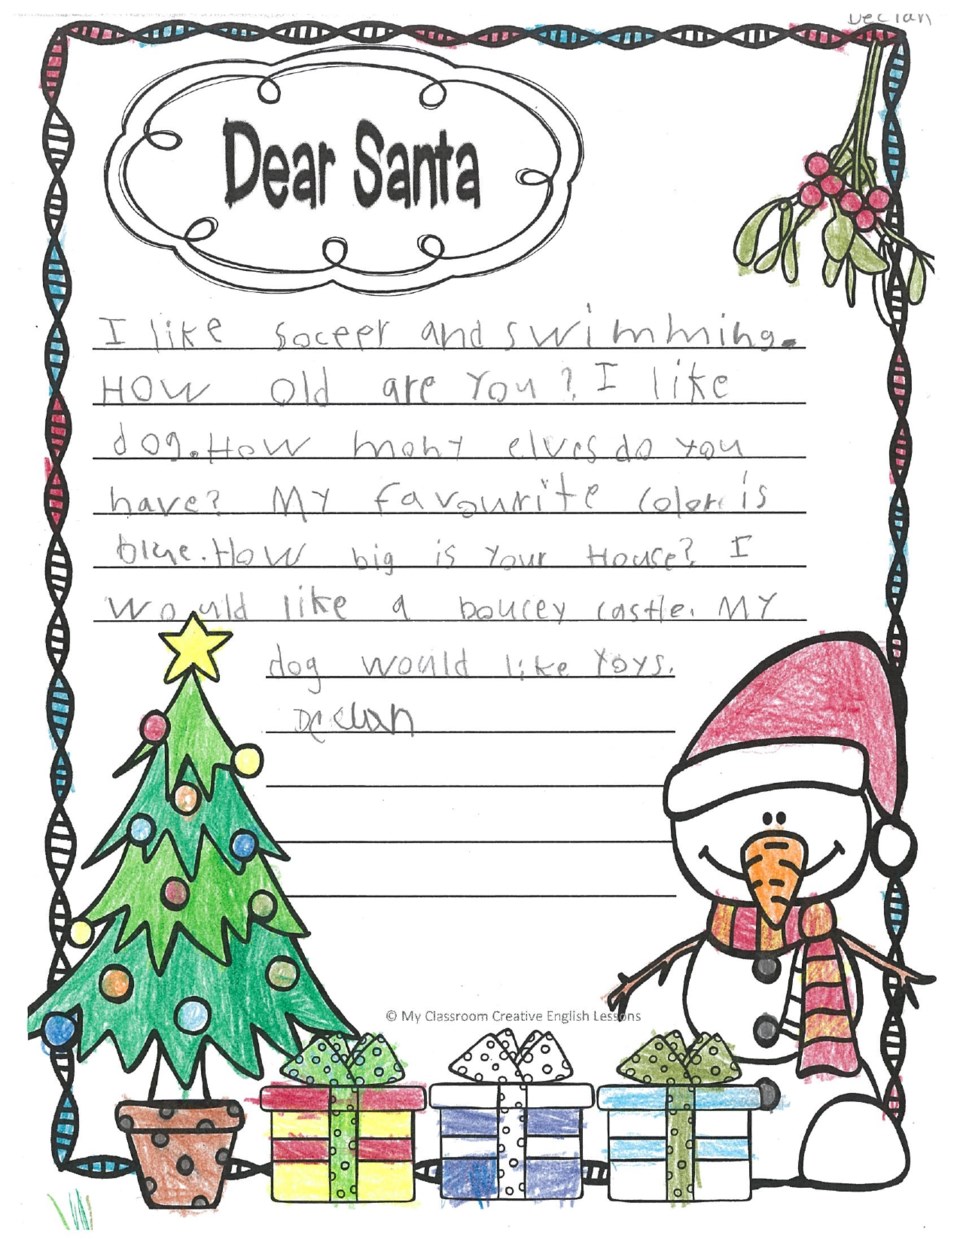 Declan
Dear Santa
I like soceer and swimming.
How old are you? I like
dog. How many elves do you
have? My favourite color is
blue. How big is your House? I
would like a boucey castle. My
dog would like toys.
Declan
© My Classroom Creative English Lessons